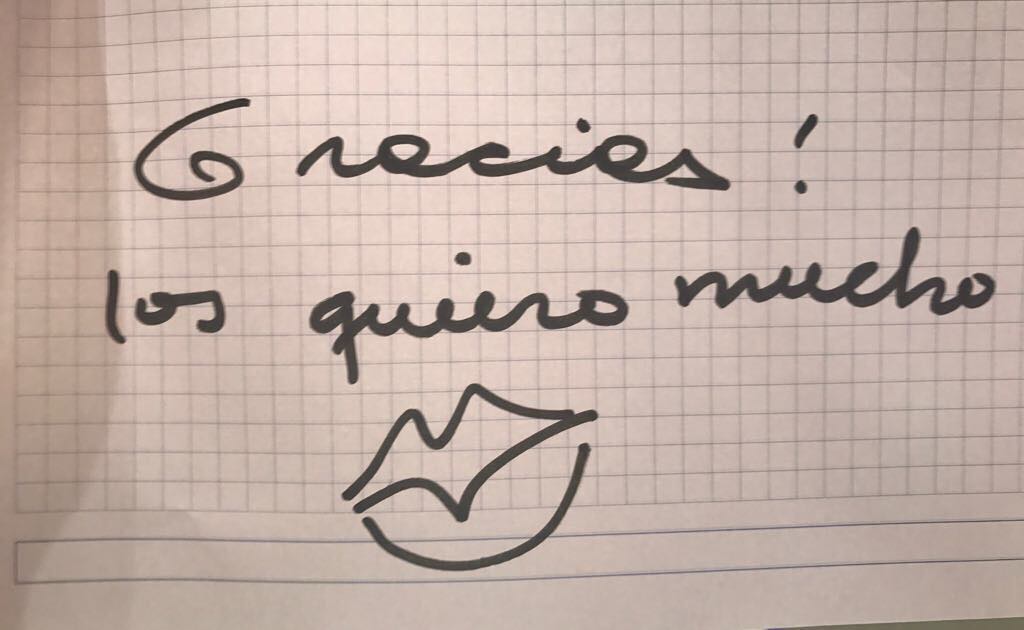 Gracias!
los quiero mucho